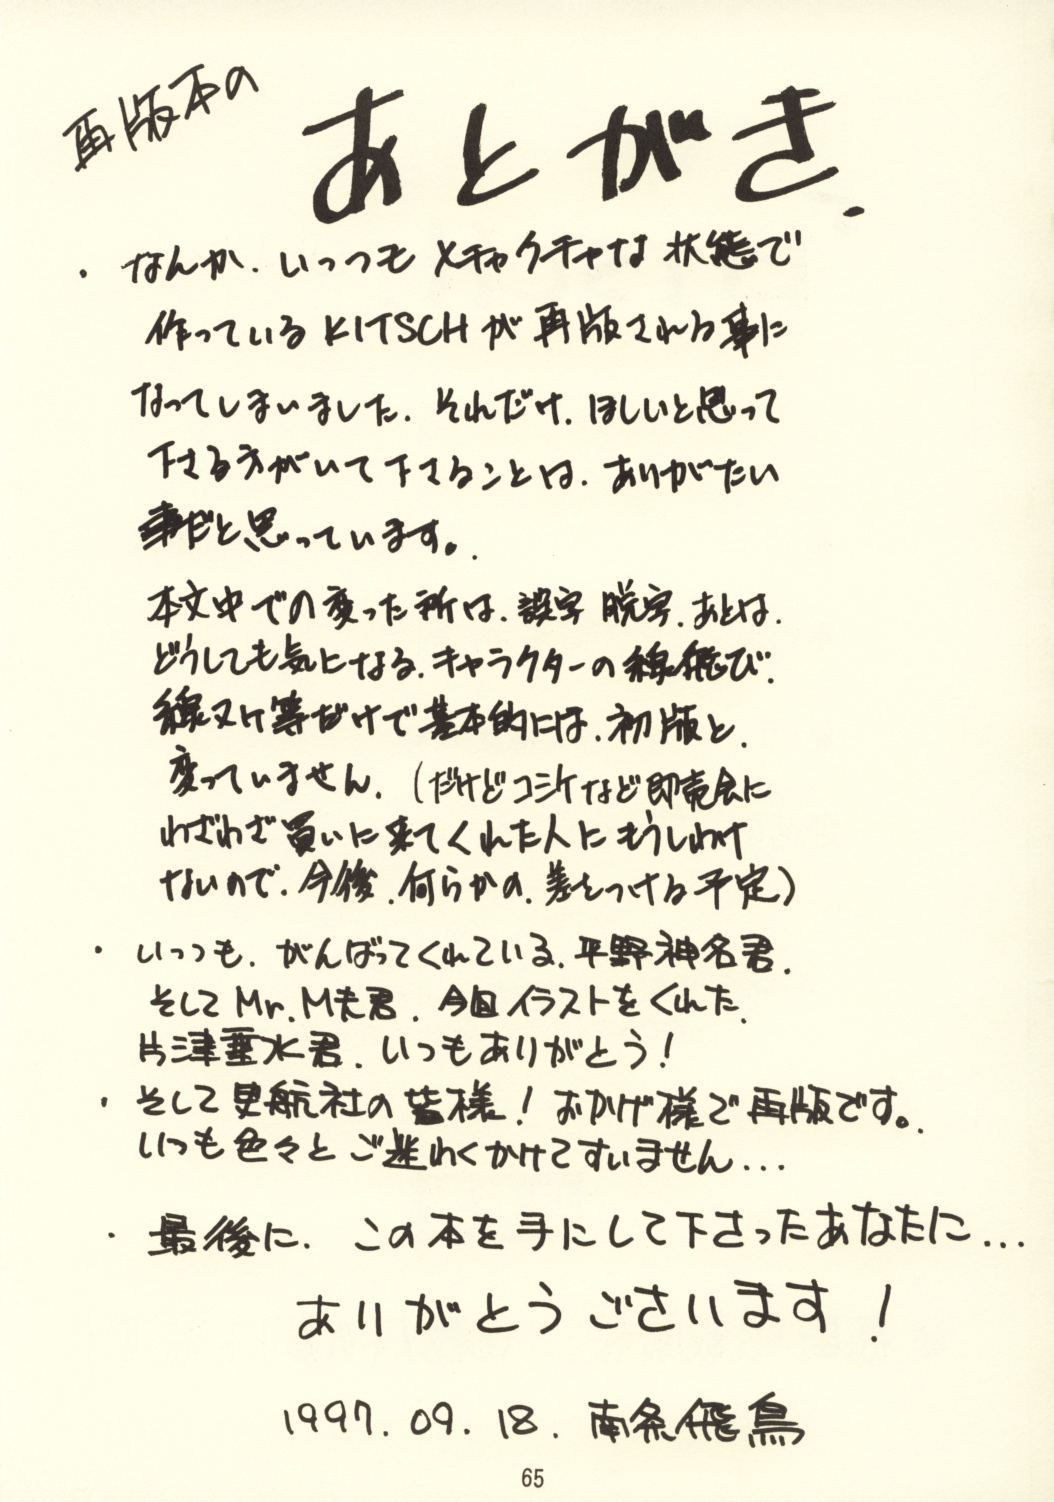 再版本の
あとがき.
・なんか.いっつもメチャクチャな状態で
作っているKITSCHが再版される事に
なってしまいました.それだけ.ほしいと思って
下さる方がいて下さるンとは.ありがたい
事だと思っています。.
本文中での変った所は.誤字 脱字.あとは.
どうしても気になる.キャラクターの線飛び.
線ヌケ等だけで基本的には.初版と.
変っていません.(だけどコミケなど即売会に
わざわざ買いに来てくれた人にもうしわけ
ないので.今後.何らかの.差をつける予定)
・いっつも.がんばってくれている.平野神名君.
そしてMr.M夫君.今回イラストをくれた.
片津垂水君.いつもありがとう!
・そして 航社の皆様!おかげ様で再版です。.
いつも色々とご迷わくかけてすいません...
・最後に.この本を手にして下さったあなたに...
ありがとうございます!
1997.09.18.南条飛鳥
65